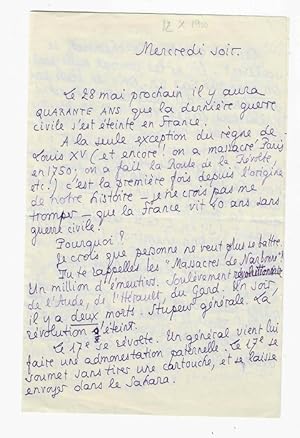 12 X 1900
Mercredi soir.
Le 28 mai prochain il y aura
QUARANTE ANS que la dernière guerre
civile s'est éteinte en France.
A la seule exception du règne de
Louis XV (et encore!! on a massacré Paris
en 1750; on a fait la Route de la Révolte,
etc!) c'est la première fois depuis l'origine
de notre histoire – je ne crois pas me
tromper – que la France vit 40 ans sans
guerre civile!
Pourquoi?
Je crois que personne ne veut plus se battre.
Tu te rappelles les "Massacres de Narbonne"?
Un million d'émeutiers. Soulèvement révolutionnaire
de l'Aude, de l'Hérault, du Gard. Un soir,
il y a deux morts. Stupeur générale. La
révolution s'éteint.
Le 17e se révolte. Un général vient lui
faire une admonestation paternelle. Le 17e se
soumet sans tirer une cartouche, et se laisse
envoyer dans le Sahara.